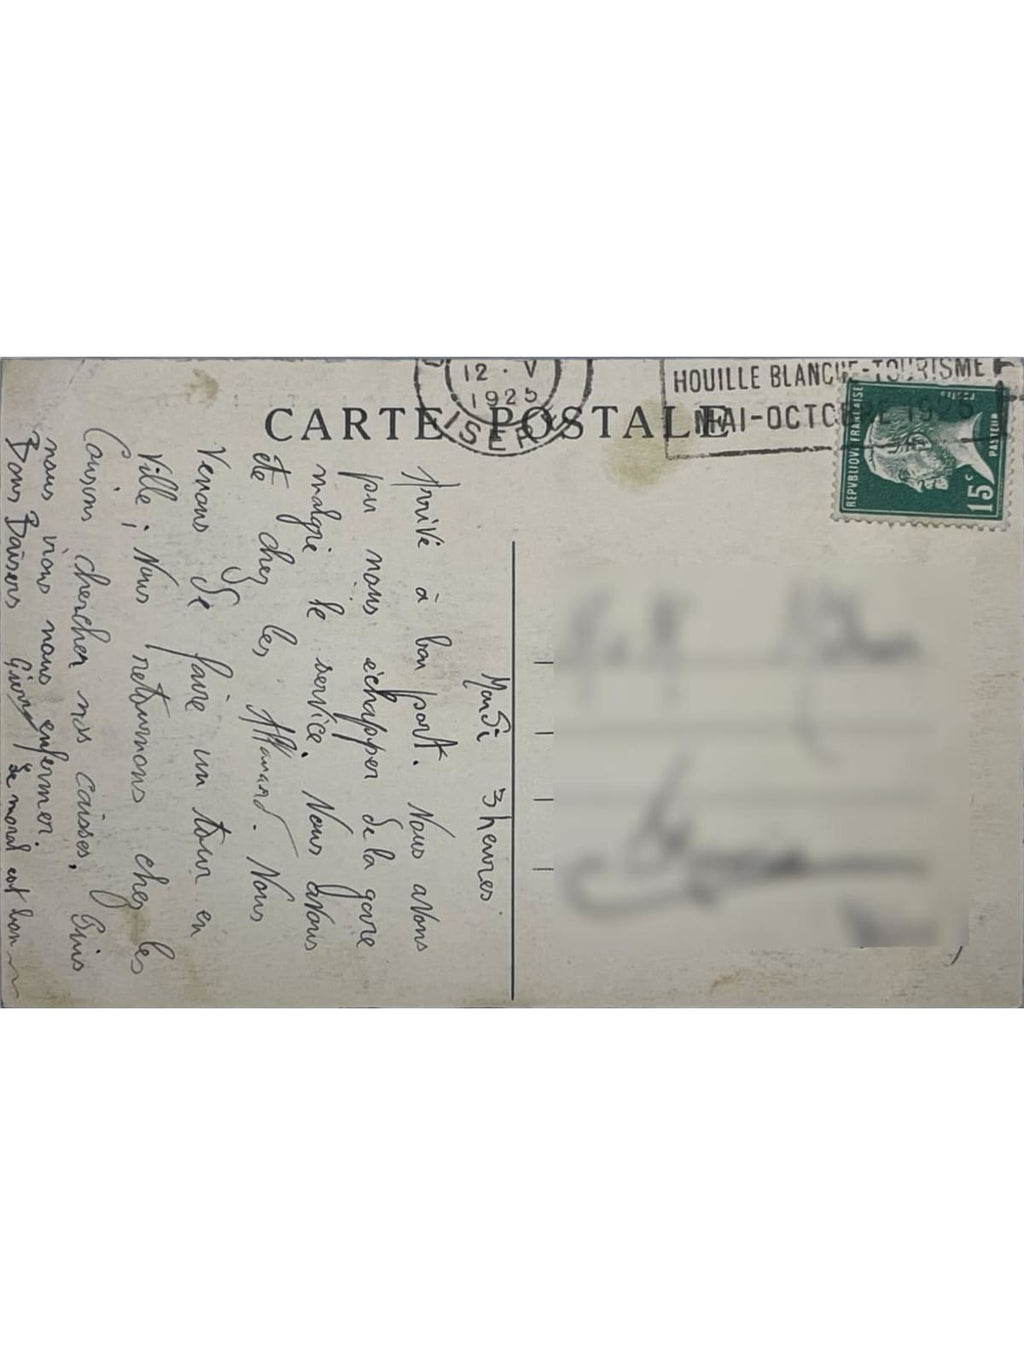 12 · V
1925
ISERE
HOUILLE BLANCHE-TOURISME
MAI-OCTOBRE 1925
CARTE POSTALE
REPUBLIQUE FRANCAISE
15c
PASTEUR
Mardi 3 heures
Arrivé à bon port. Nous avons
pu nous échapper de la gare
malgré le service. Nous avons
été chez les Allanard. Nous
venons de faire un tour en
ville ; Nous retournons chez les
Cousins chercher nos caisses. Puis
nous irons nous enfermer.
Bons Baisers
le moral est bon